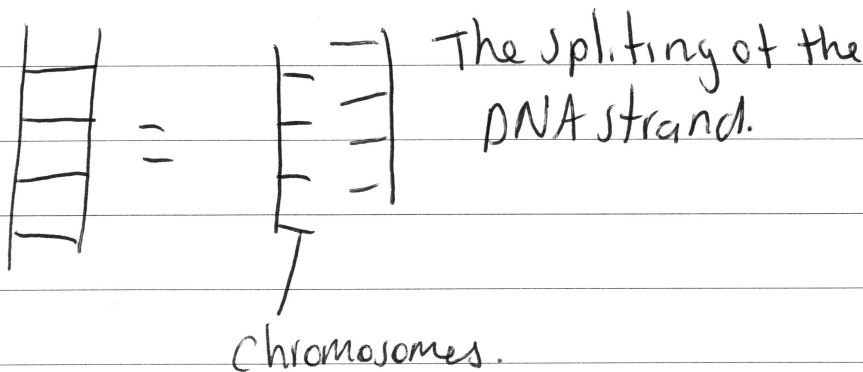 The spliting of the
DNA strand.
Chromosomes.